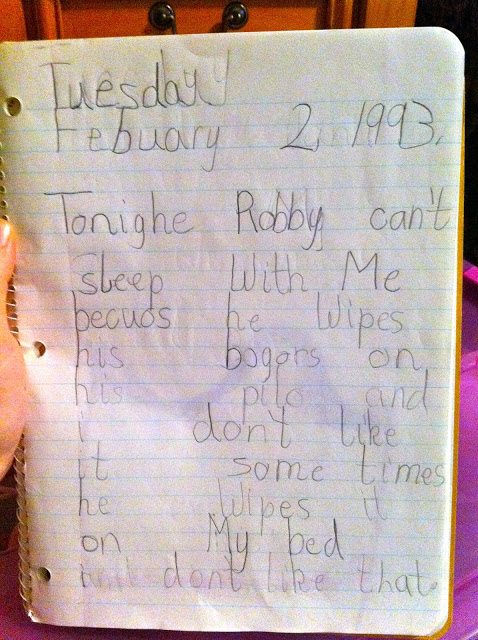 Tuesday
Febuary 2, 1993.
Tonighe Robby can't
sleep With Me
becuos he Wipes
his bogors on
his pilo and
i don't like
it some times
he Wipes it
on My bed
i dont like that.